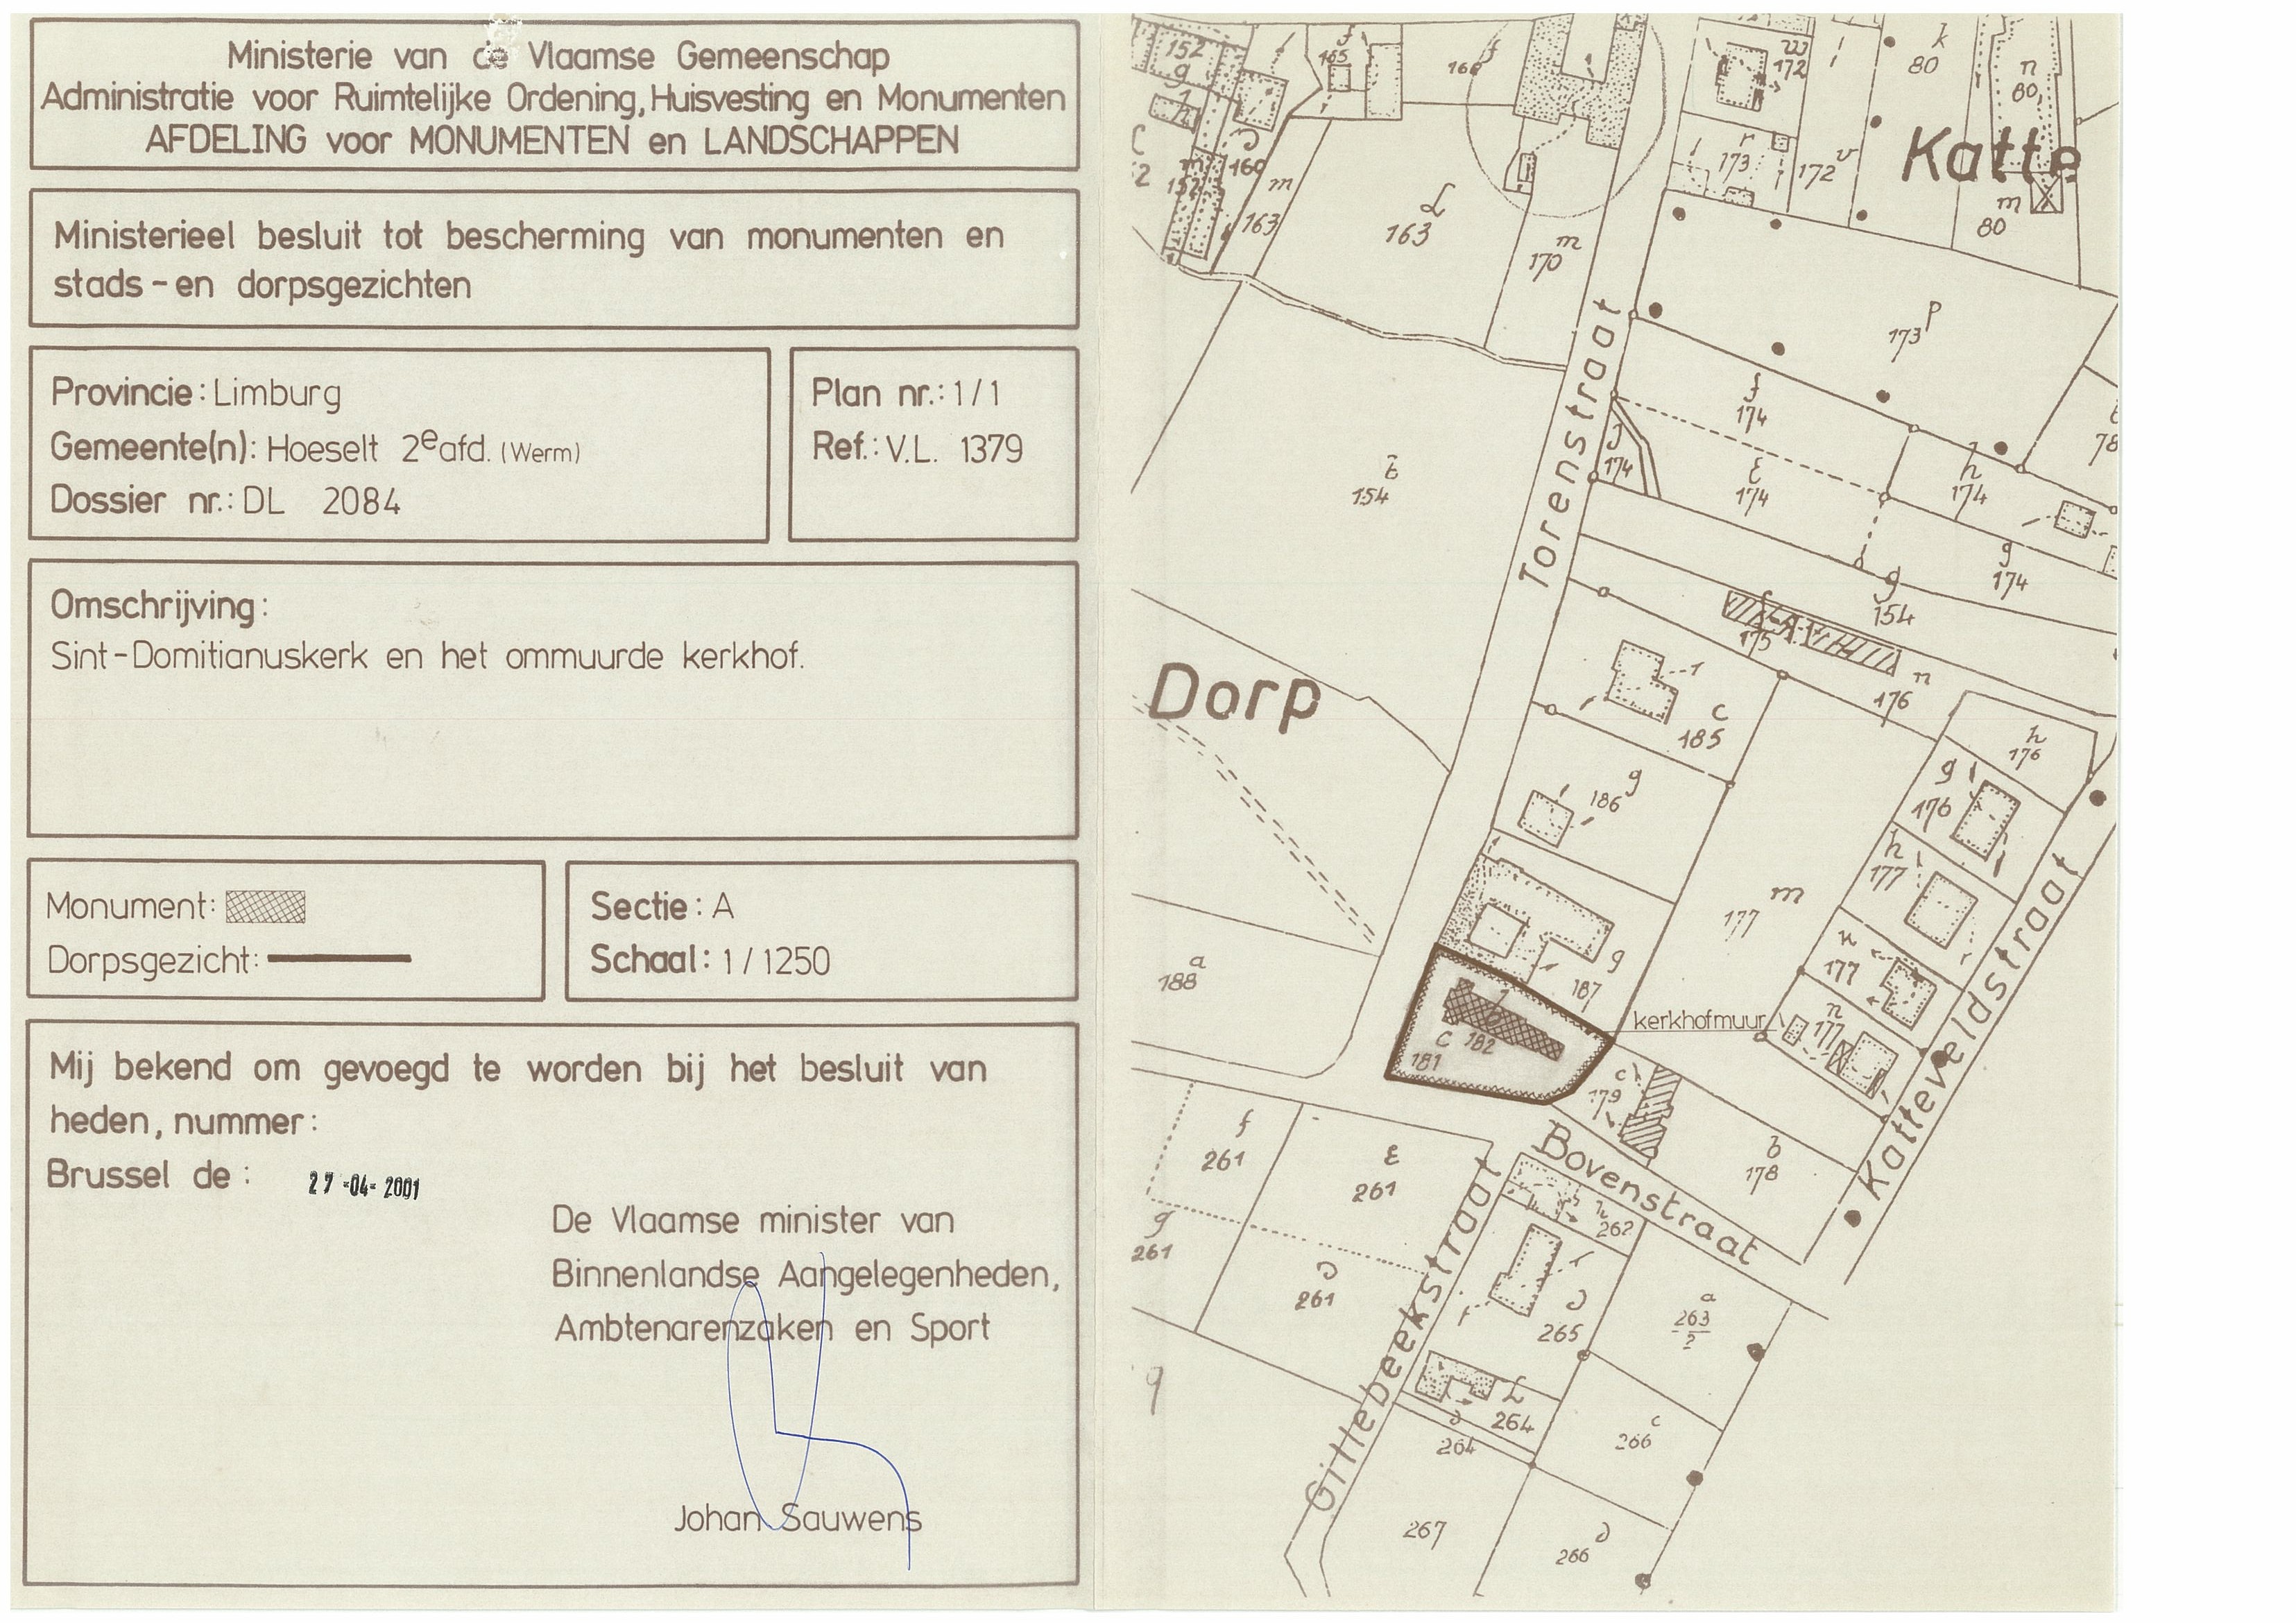 Ministerie van de Vlaamse Gemeenschap
Administratie voor Ruimtelijke Ordening, Huisvesting en Monumenten
AFDELING voor MONUMENTEN en LANDSCHAPPEN
Ministerieel besluit tot bescherming van monumenten en
stads-en dorpsgezichten
Provincie: Limburg
Gemeente(n): Hoeselt 2e afd. (Werm)
Dossier nr.: DL 2084
Plan nr.: 1/1
Ref.: V.L. 1379
Omschrijving:
Sint-Domitianuskerk en het ommuurde kerkhof.
Monument:
Dorpsgezicht:
Sectie: A
Schaal: 1/1250
Mij bekend om gevoegd te worden bij het besluit van
heden, nummer:
Brussel de: 27-04-2001
De Vlaamse minister van
Binnenlandse Aangelegenheden,
Ambtenarenzaken en Sport
Johan Sauwens
152 g
165 f
w 172
k 80
n 80
160
r 173
172 v
Katte
m 80
m 163
L 163
m 170
173 p
Torenstraat
f 174
174
E 174
h 174
g 174
154
g 154
175
n 176
Dorp
c 185
186 g
h 176
g 176
h 177
m 177
177
n 177
188 a
g 187
kerkhofmuur
C 181
182
c 179
b 178
Katteveldstraat
Bovenstraat
f 261
E 261
g 261
261
262
265
a 263/2
L 264
264
266 c
Gillebeekstraat
267
266
9